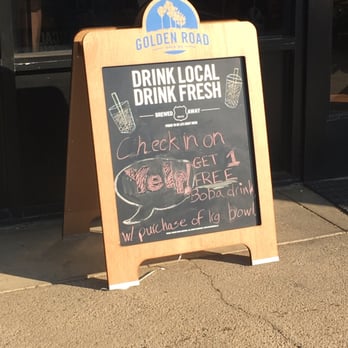 GOLDEN ROAD
DRINK LOCAL
DRINK FRESH
BREWED AWAY
Check in on
Yelp GET 1
FREE
Boba drink
w/ purchase of lg bowl